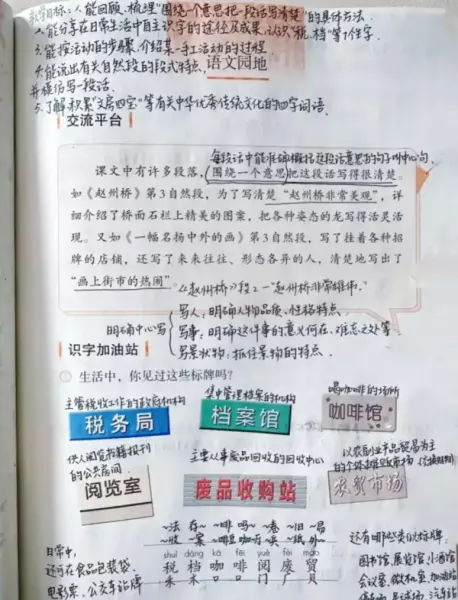 教学目标:1.能回顾、梳理“围绕一个意思把一段话写清楚”的具体方法.
2.能分享在日常生活中自主识字的途径及成果,认识“税、档”等7个生字.
3.能按活动的步骤,介绍某一手工活动的过程
4.能说出有关自然段的段式特点,
语文园地
并模仿写一段话.
5.了解积累“文房四宝”等有关中华优秀传统文化的四字词语.
交流平台
每段话中能准确概括这段话意思的句子叫中心句.
课文中有许多段落,围绕一个意思把这段话写得很清楚。
如《赵州桥》第3自然段,为了写清楚“赵州桥非常美观”,详
细介绍了桥面石栏上精美的图案,把各种姿态的龙写得活灵活
现。又如《一幅名扬中外的画》第3自然段,写了挂着各种招
牌的店铺,还写了来来往往、形态各异的人,清楚地写出了
“画上街市的热闹”。
《赵州桥》段2:“赵州桥非常雄伟.”
写人:明确人物品质、性格特点
明确中心写
写事:明确这件事的意义何在、难忘之处等.
写景状物:抓住景物的特点.
识字加油站
生活中,你见过这些标牌吗?
主管税收工作的政府机构
集中管理档案的机构
喝咖啡的场所
税务局
档案馆
咖啡馆
供人阅览书籍报刊
的公共房间
主要从事废品回收的回收中心
以农副业产品贸易为主
阅览室
废品收购站
农贸市场
shuì dàng kā fēi yuè fèi mào
税 档 咖 啡 阅 废 贸
禾 木 口 口 门 广 贝
日常中,
还可在食品包装袋、
电影票、公交车站牌
还有哪些类似标牌.
图书馆、展览馆、小酒馆
会议室、微机室、加油站
停车场、足球场、汽车站